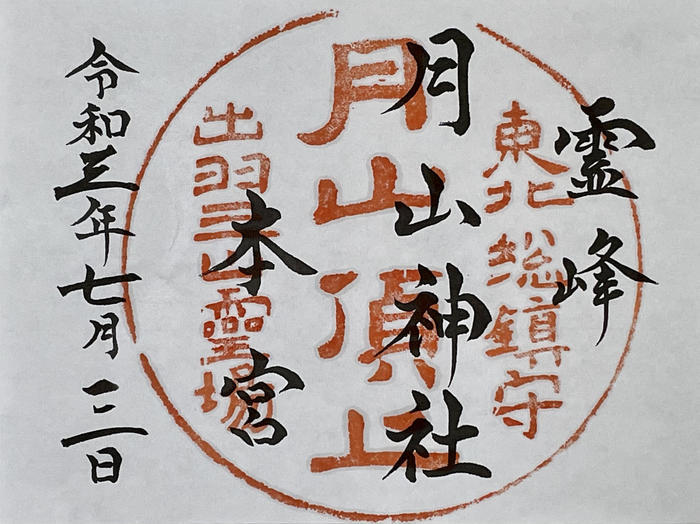 霊峰
東北総鎮守
月山神社
月山頂上
本宮
出羽三山靈場
令和三年七月三日